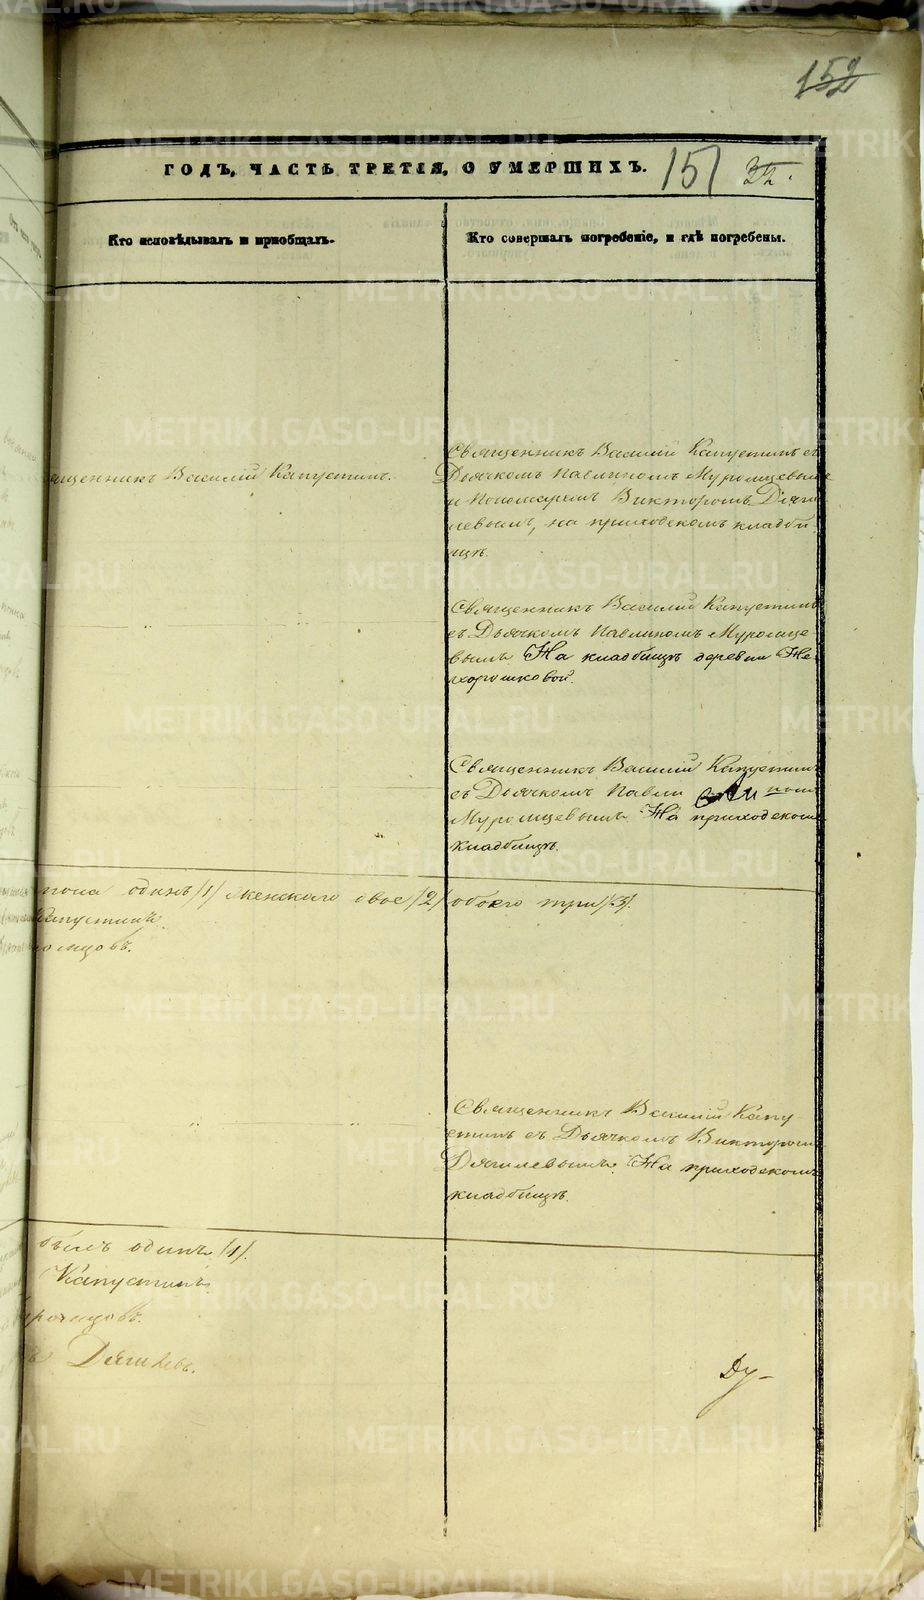 152
ГОДЪ, ЧАСТЬ ТРЕТІЯ, О УМЕРШИХЪ. 151 32.
Кто исповѣдывалъ и приобщалъ.
Кто совершалъ погребеніе, и гдѣ погребены.
ященникъ Василій Капустинъ.
Священникъ Василій Капустинъ съ
Дьячкомъ Павлиномъ Муромцевымъ
и Пономаремъ Викторомъ Дяги
левымъ, на приходскомъ кладби
щѣ.
Священникъ Василій Капустинъ
съ Дьячкомъ Павлиномъ Муромце
вымъ На кладбищѣ деревни Не
хорошковой.
Священникъ Василій Капустинъ
съ Дьячкомъ Павли номъ
Муромцевымъ На приходскомъ
кладбищѣ.
пола одинъ /1/ женскаго двое /2/ обоего три /3/.
Капустинъ.
омцовъ.
Священникъ Василій Капу
стинъ съ Дьячкомъ Викторомъ
Дягилевымъ. На приходскомъ
кладбищѣ.
былъ одинъ /1/.
Капустинъ
уромцовъ.
ъ Дягилевъ.
Ду-
METRIKI.GASO-URAL.RU